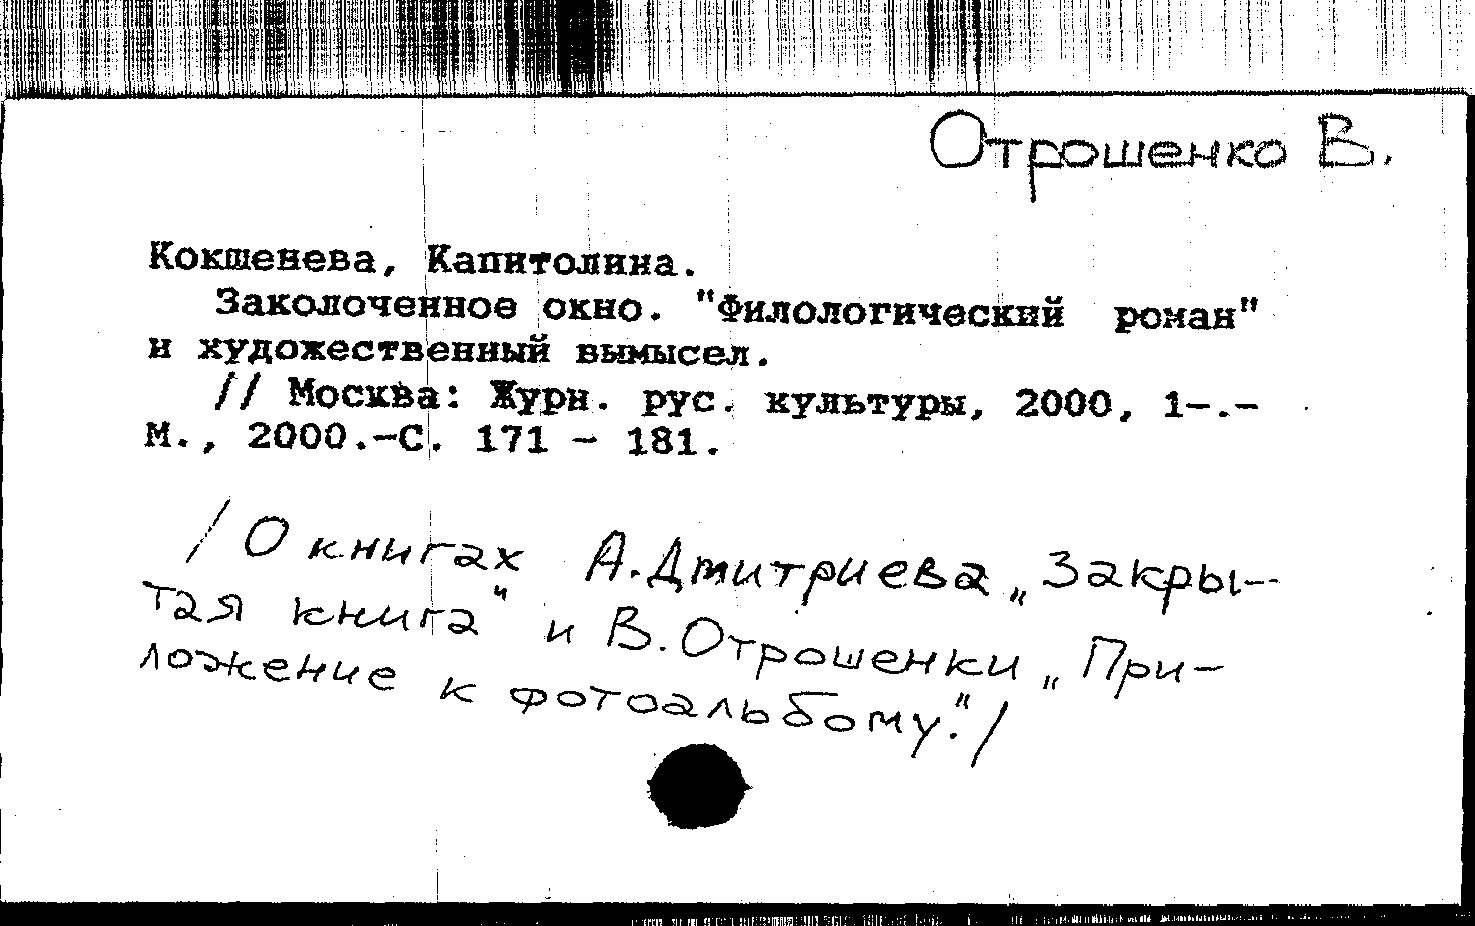 Отрошенко В.
Кокшенева, Капитолина.
Заколоченное окно. "Филологический роман"
и художественный вымысел.
// Москва: Журн. рус. культуры, 2000, 1-.-
М., 2000.-С. 171 - 181.
/О книгах А.Дмитриева „Закры-
тая книга" и В.Отрошенки „При-
ложение к фотоальбому."./